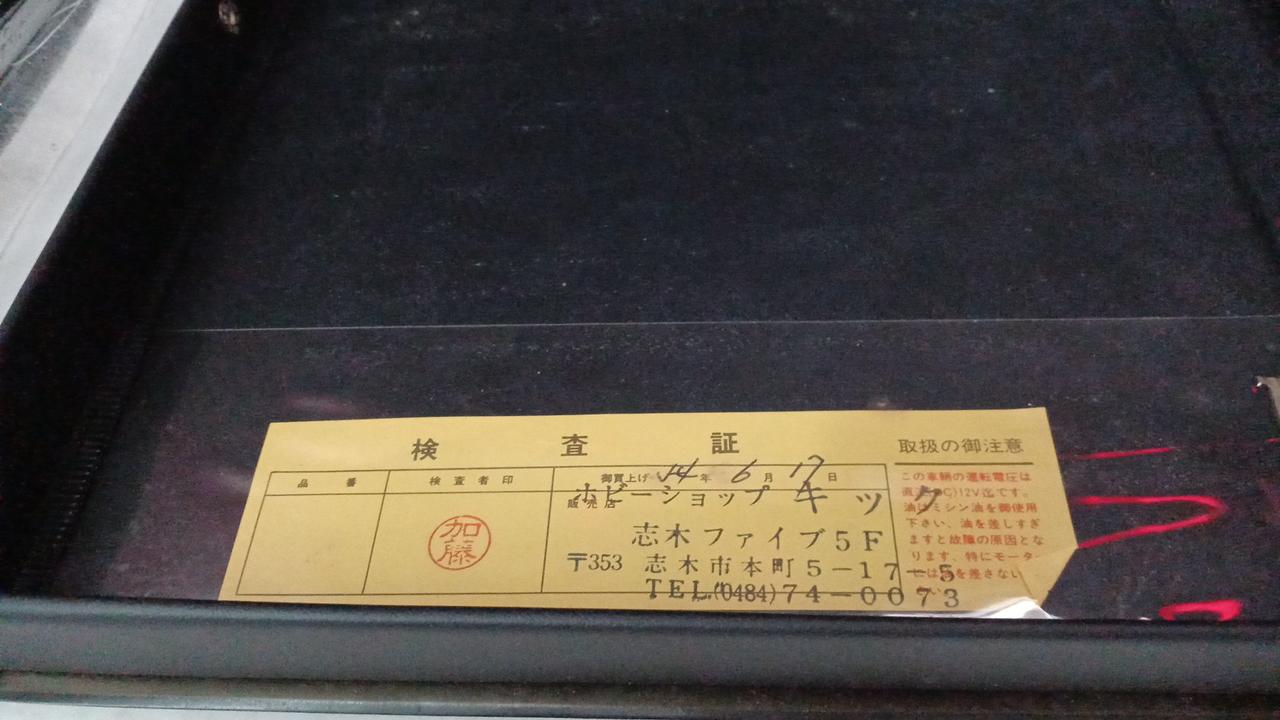 検 査 証
品 番
検査者印
御買上げ 54年 6月 17日
販売店
加藤
ホビーショップ キック
志木ファイブ5F
〒353 志木市本町5-17-5
TEL.(0484)74-0073
取扱の御注意
この車輌の運転電圧は
直流(DC)12V迄です。
油はミシン油を御使用
下さい、油を差しすぎ
ますと故障の原因とな
ります、特にモーター
には油を差さない